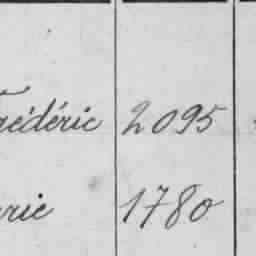 Frédéric 2095
rie 1780